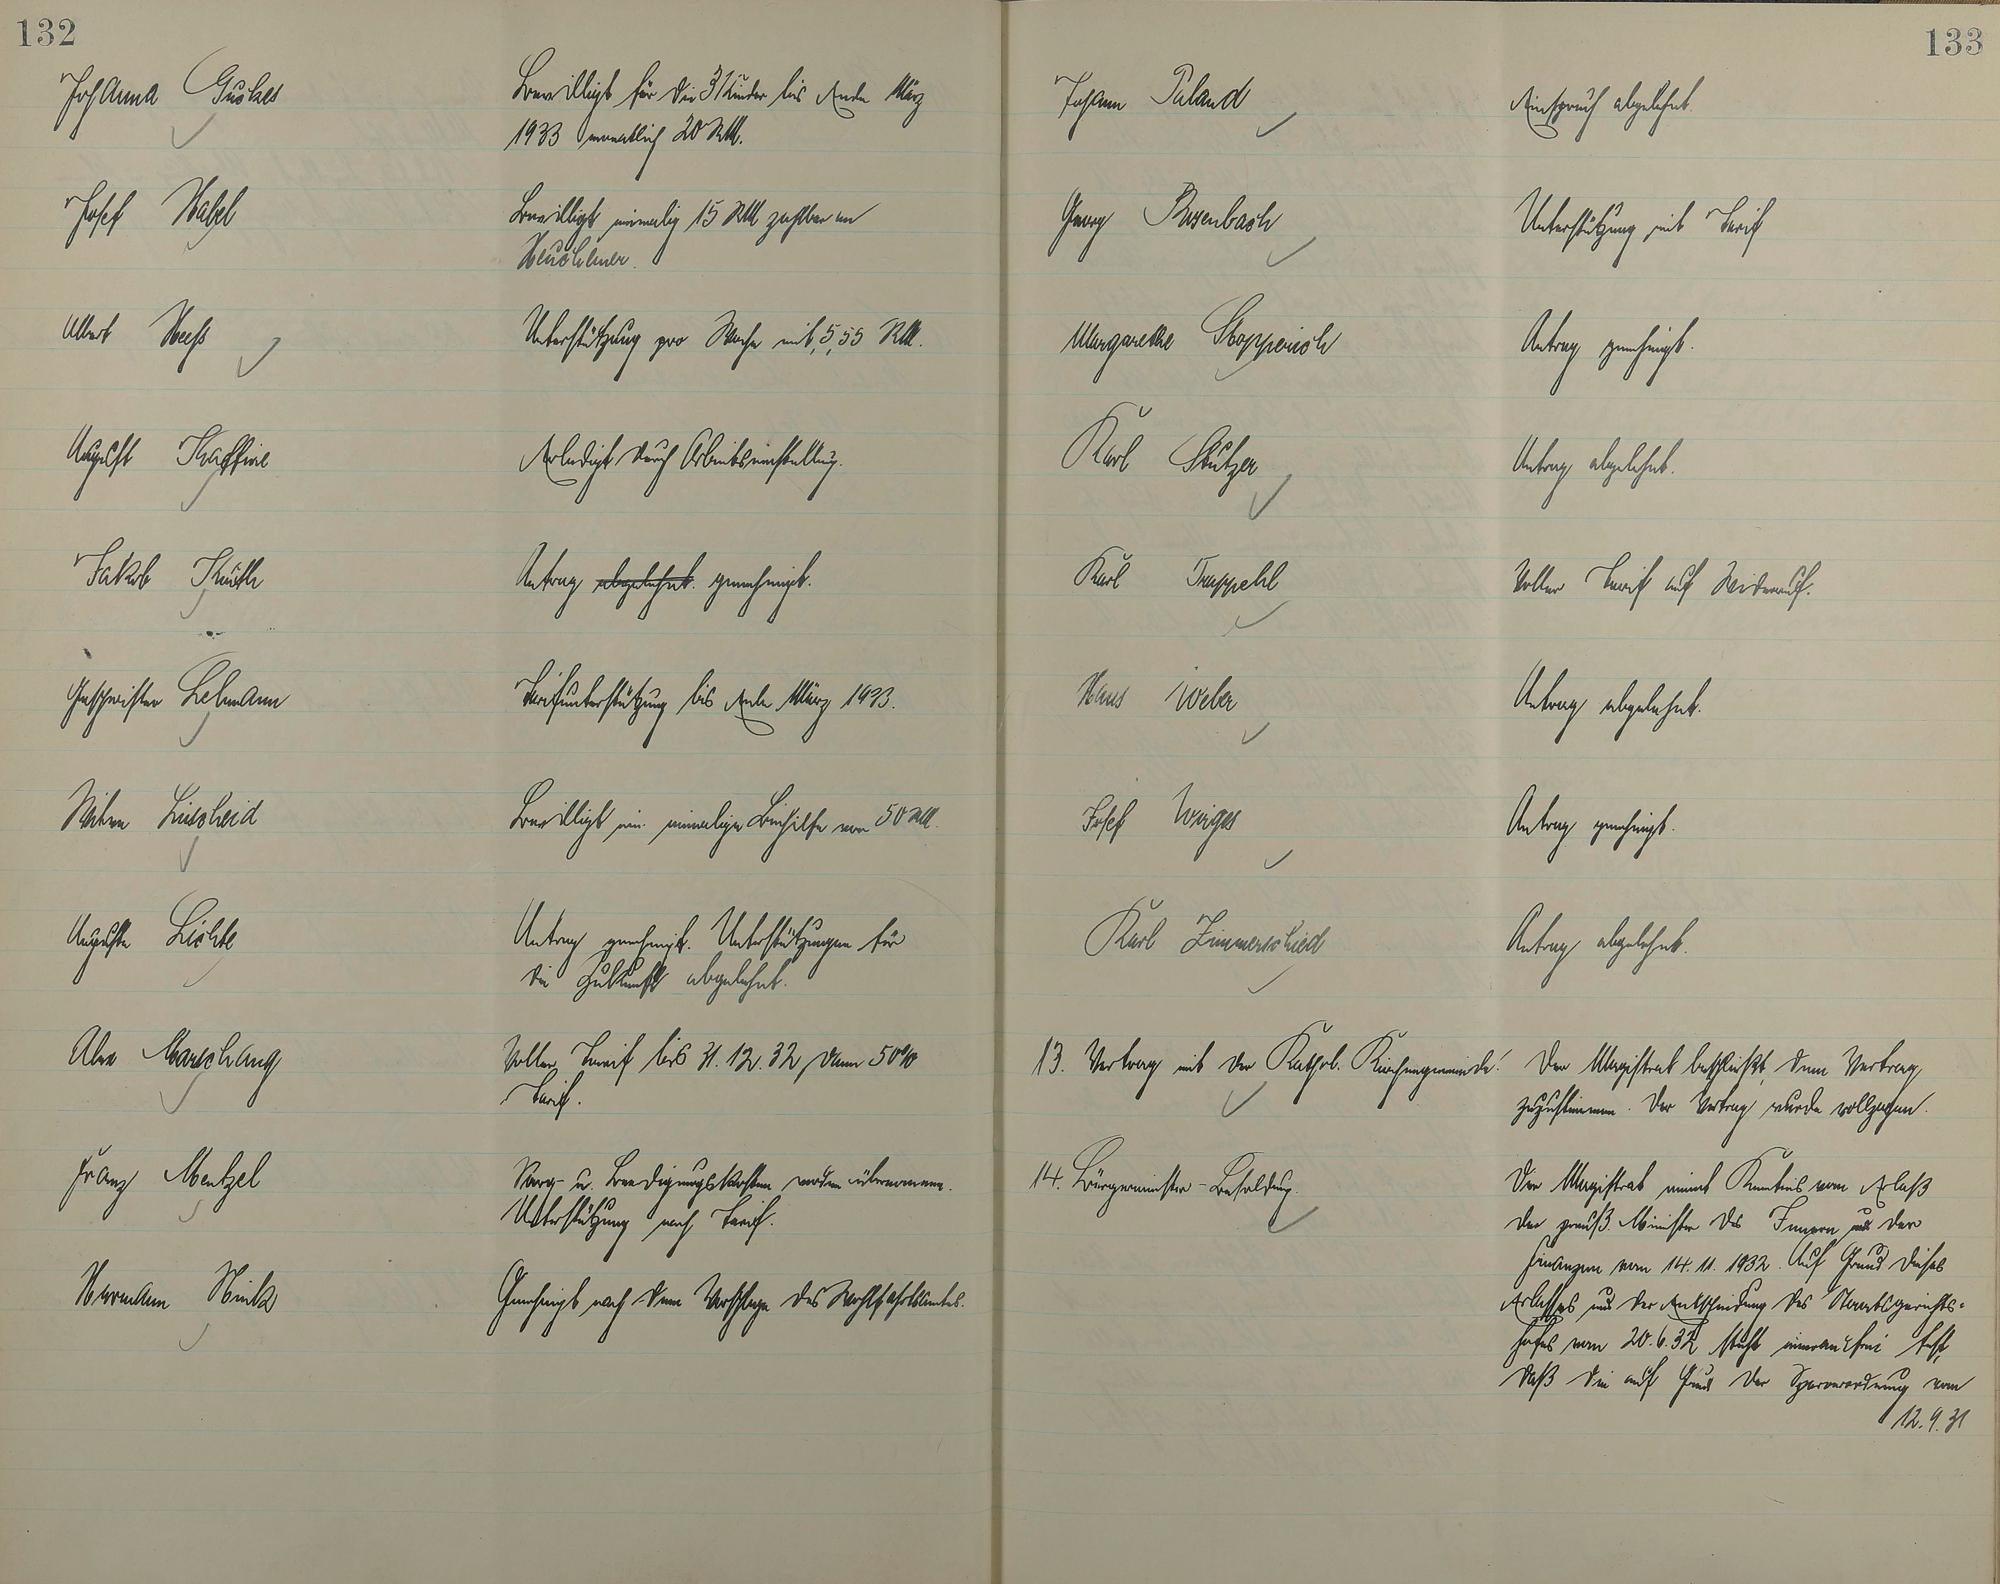 132
Johanna Guckes
Bewilligt für die 3 Kinder bis Ende März
1933 monatlich 20 RM.
Josef Habel
Bewilligt einmalig 15 RM zahlbar an
Albert Heess
Unterstützung pro Woche mit 5,55 RM.
August
Erledigt durch Arbeitseinstellung.
Jakob
Antrag abgelehnt. genehmigt.
Geschwister Lehmann
Tarifunterstützung bis Ende März 1933.
Witwe Linscheid
Bewilligt ein. einmalige Beihilfe von 50 RM.
Auguste Lichte
Antrag genehmigt. Unterstützungen für
die Zukunft abgelehnt.
Alex Marschang
Voller Tarif bis 31.12.32, dann 50%
Tarif.
Franz Mentzel
Sarg- u. Beerdigungskosten werden übernommen.
Unterstützung nach Tarif.
Hermann
Genehmigt nach dem Vorschlage des Wohlfahrtsamtes.
133
Johann Puland
Einspruch abgelehnt.
Georg Rosenbach
Unterstützung mit Tarif
Margarethe Stopperich
Antrag genehmigt.
Karl Stutzer
Antrag abgelehnt.
Karl Trappehl
Voller Tarif auf Widerruf.
Hans Weber
Antrag abgelehnt.
Josef Wirges
Antrag genehmigt.
Karl Zimmerschied
Antrag abgelehnt.
13. Vertrag mit der Kathol. Kirchengemeinde.
Der Magistrat beschließt, dem Vertrag
zuzustimmen. Der Vertrag wurde vollzogen.
14. Bürgermeister-Besoldung.
Der Magistrat nimmt Kenntnis vom Erlaß
der preuß. Minister des Innern und der
Finanzen vom 14.11.1932. Auf Grund dieses
Erlasses und der Entscheidung des Staatsgerichts-
hofes vom 20.6.32 steht einwandfrei fest,
daß die auf Grund der Sparverordnung vom
12.9.31